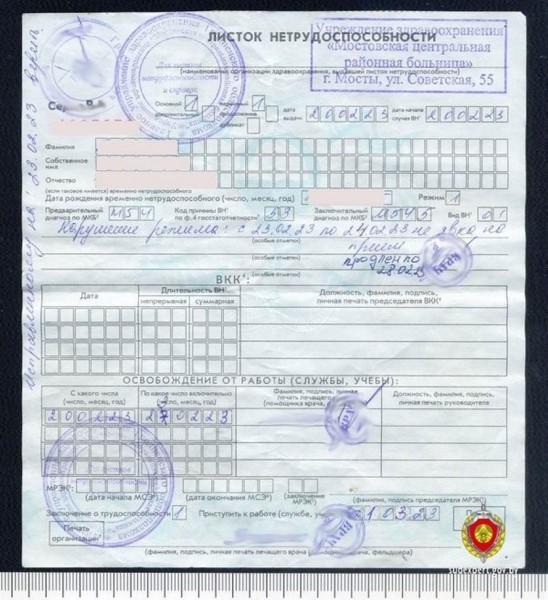 ЛИСТОК НЕТРУДОСПОСОБНОСТИ
Учреждение здравоохранения
«Мостовская центральная
районная больница»
г. Мосты, ул. Советская, 55
(наименование организации здравоохранения, выдавшей листок нетрудоспособности)
Для листков
нетрудоспособности
и справок
Основной 1 Первичный 1 дата выдачи 200223 дата начала случая ВН 200223
Фамилия
Собственное имя
Отчество
(если таковое имеется) временно нетрудоспособного
Дата рождения временно нетрудоспособного (число, месяц, год) Режим 1
Предварительный диагноз по МКБ M54 Код причины ВН по ф.4 госстатотчетности 53 Заключительный диагноз по МКБ M54.5 Вид ВН 01
Нарушение режима: с 23.02.23 по 24.02.23 не явка на
прием
(особые отметки)
продлен по
28.02.23
(особые отметки)
(особые отметки)
исправленному на 23.02.23 верить
ВКК:
Дата Длительность ВН Должность, фамилия, подпись,
непрерывная суммарная личная печать председателя ВКК
ОСВОБОЖДЕНИЕ ОТ РАБОТЫ (СЛУЖБЫ, УЧЕБЫ):
С какого числа (число, месяц, год) По какое число включительно (число, месяц, год) Фамилия, подпись, личная печать лечащего врача (помощника врача, Должность, фамилия, подпись, личная печать руководителя
200223 270223
МРЭК:
(дата начала МСЭ) (дата окончания МСЭ) (заключение МРЭК) (фамилия, подпись председателя МРЭК)
Заключение о трудоспособности 1 Приступить к работе (службе, 010323
Печать
организации
(фамилия, подпись, личная печать лечащего врача (помощника врача, фельдшера)
sudexpert.gov.by